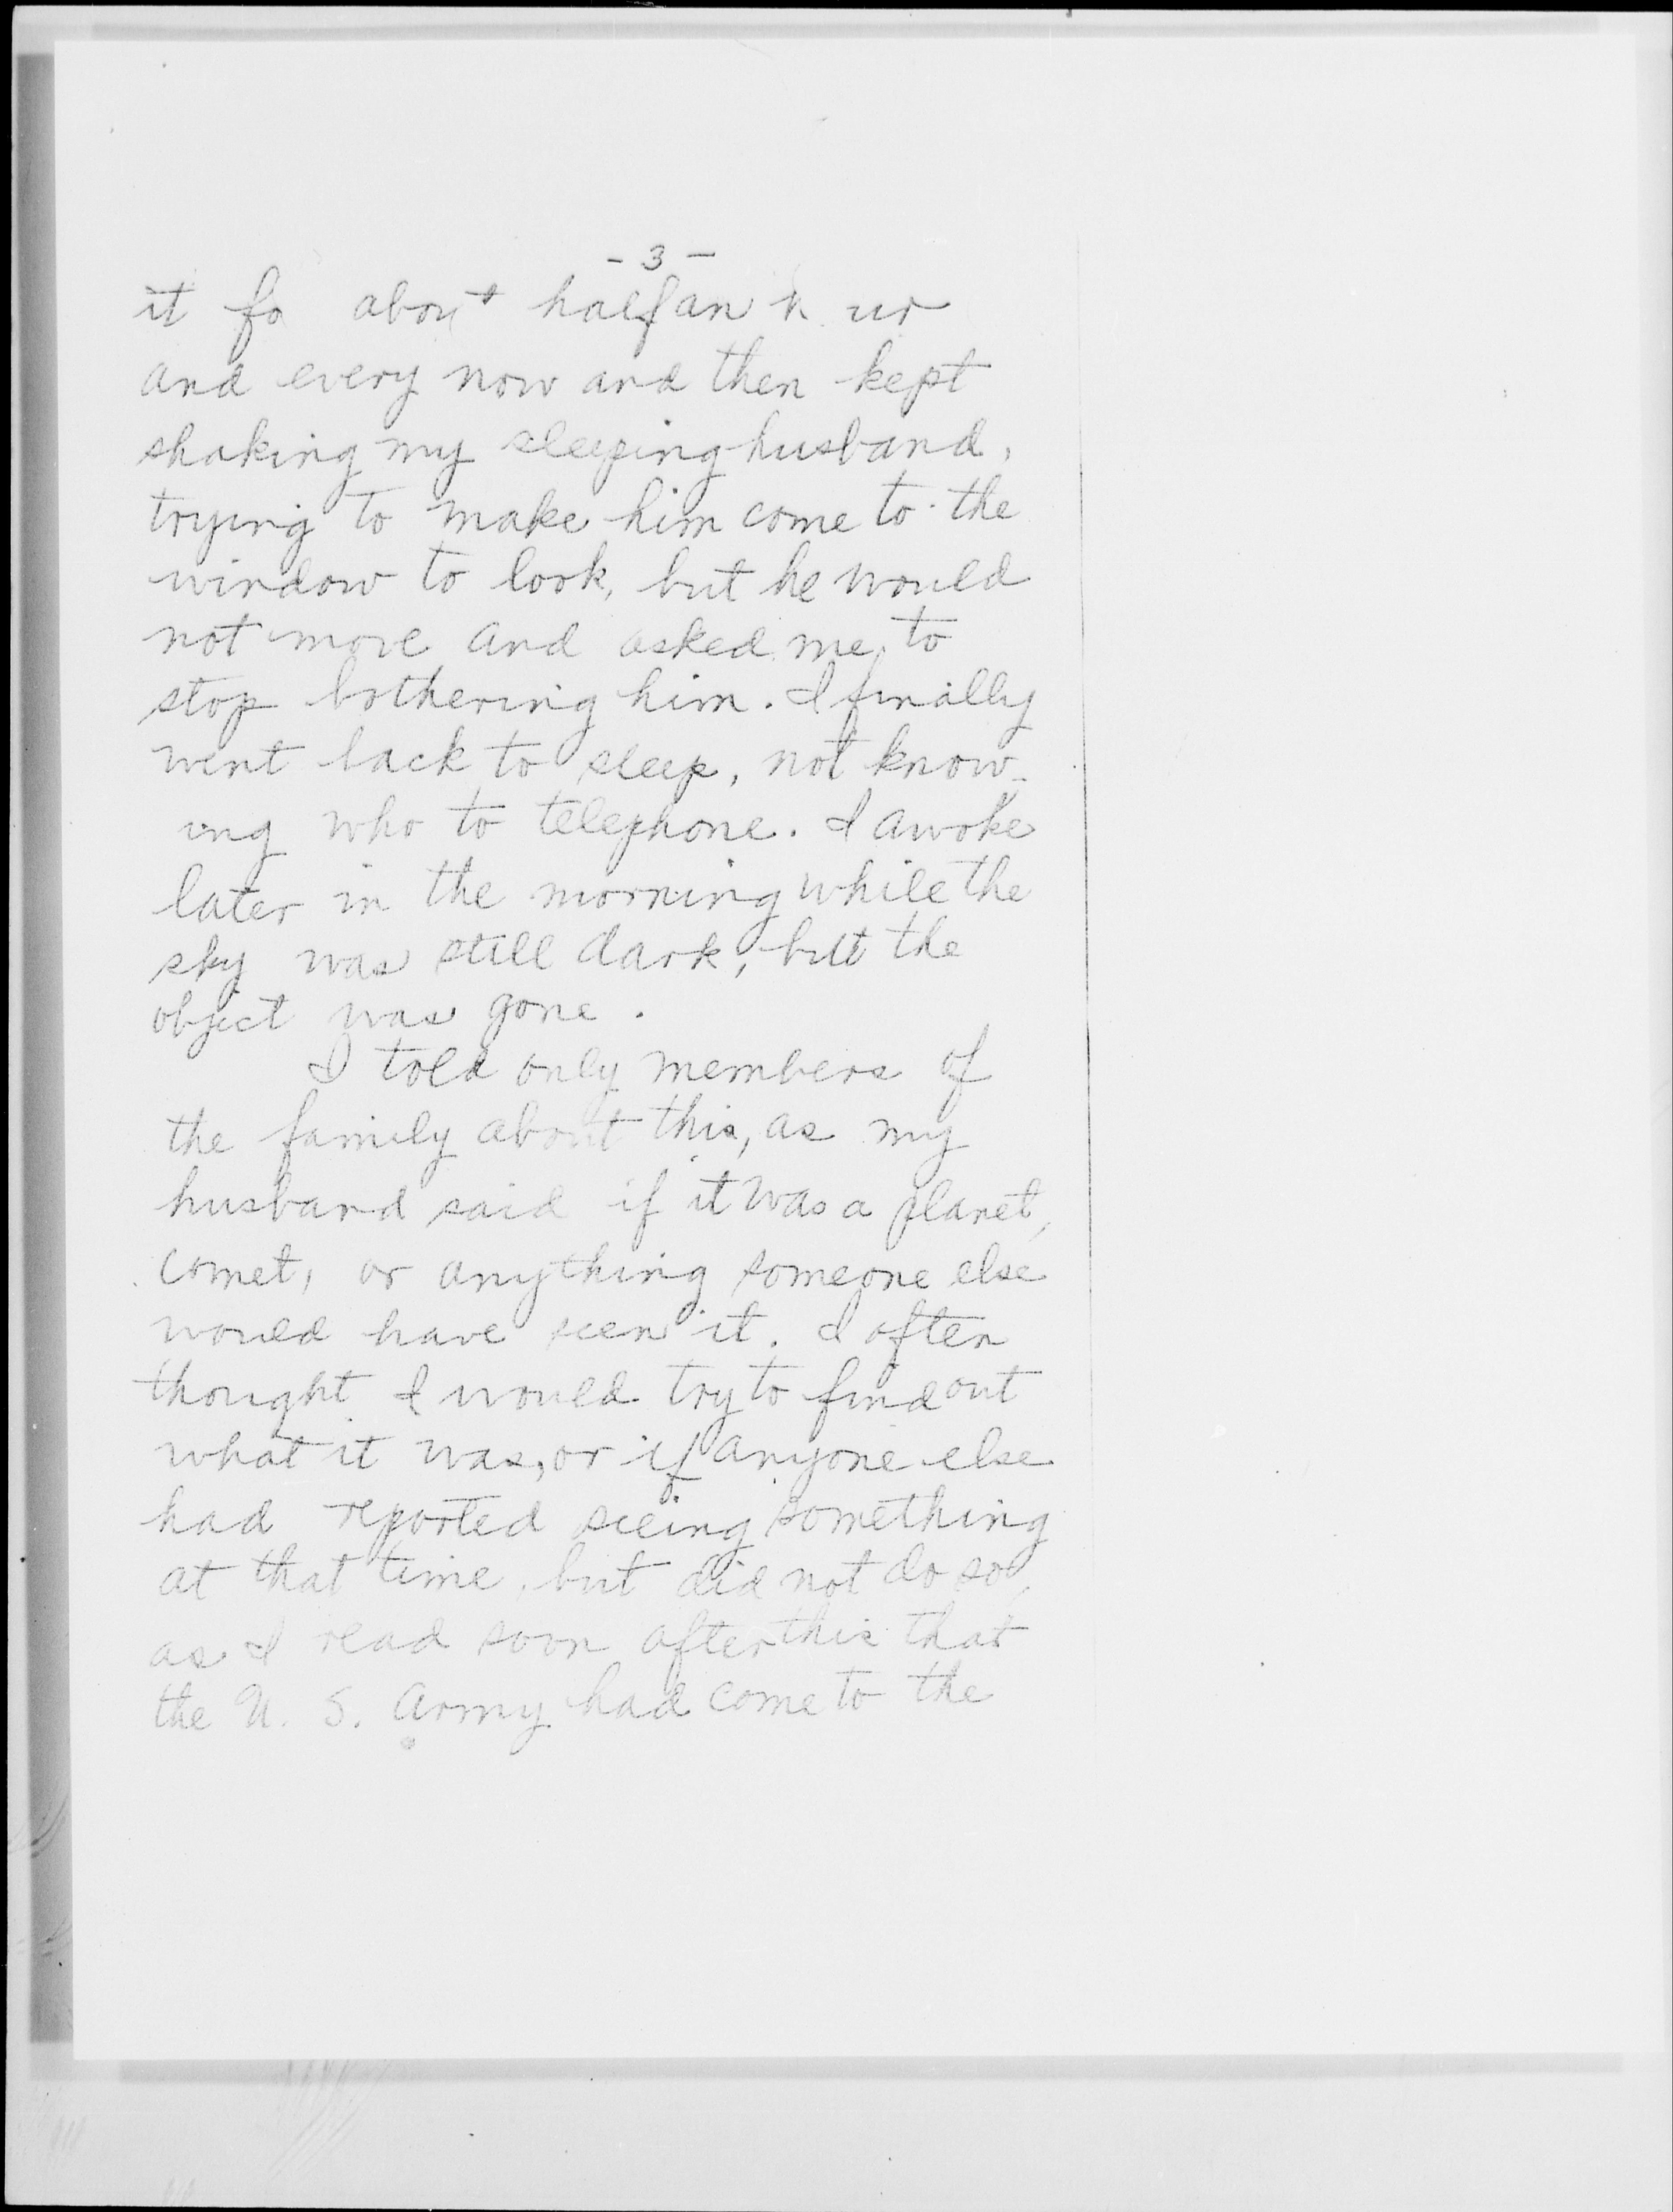 - 3 -
it fo about half an h ur
and every now and then kept
shaking my sleeping husband,
trying to make him come to the
window to look, but he would
not move and asked me to
stop bothering him. I finally
went back to sleep, not know-
ing who to telephone. I awoke
later in the morning while the
sky was still dark, but the
object was gone.
I told only members of
the family about this, as my
husband said if it was a planet,
comet, or anything someone else
would have seen it. I often
thought I would try to find out
what it was, or if anyone else
had reported seeing something
at that time, but did not do so,
as I read soon after this that
the U. S. Army had come to the